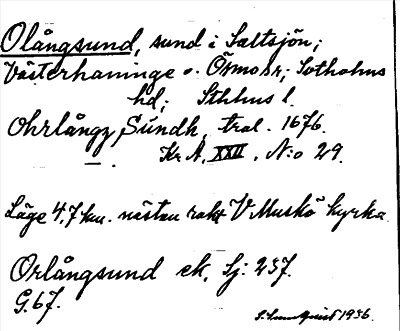 Olångsund, sund i Saltsjön;
Västerhaninge o. Ösmo sr; Sotholms
hd; Sthlms l.
Ohrlångz Sundh, tral. 1676.
— . Kr A, XXII, N:o 29.
Läge 4,7 km. nästan rakt V Muskö kyrka
Orlångsund ek. Sj: 237.
G.67.
1936.